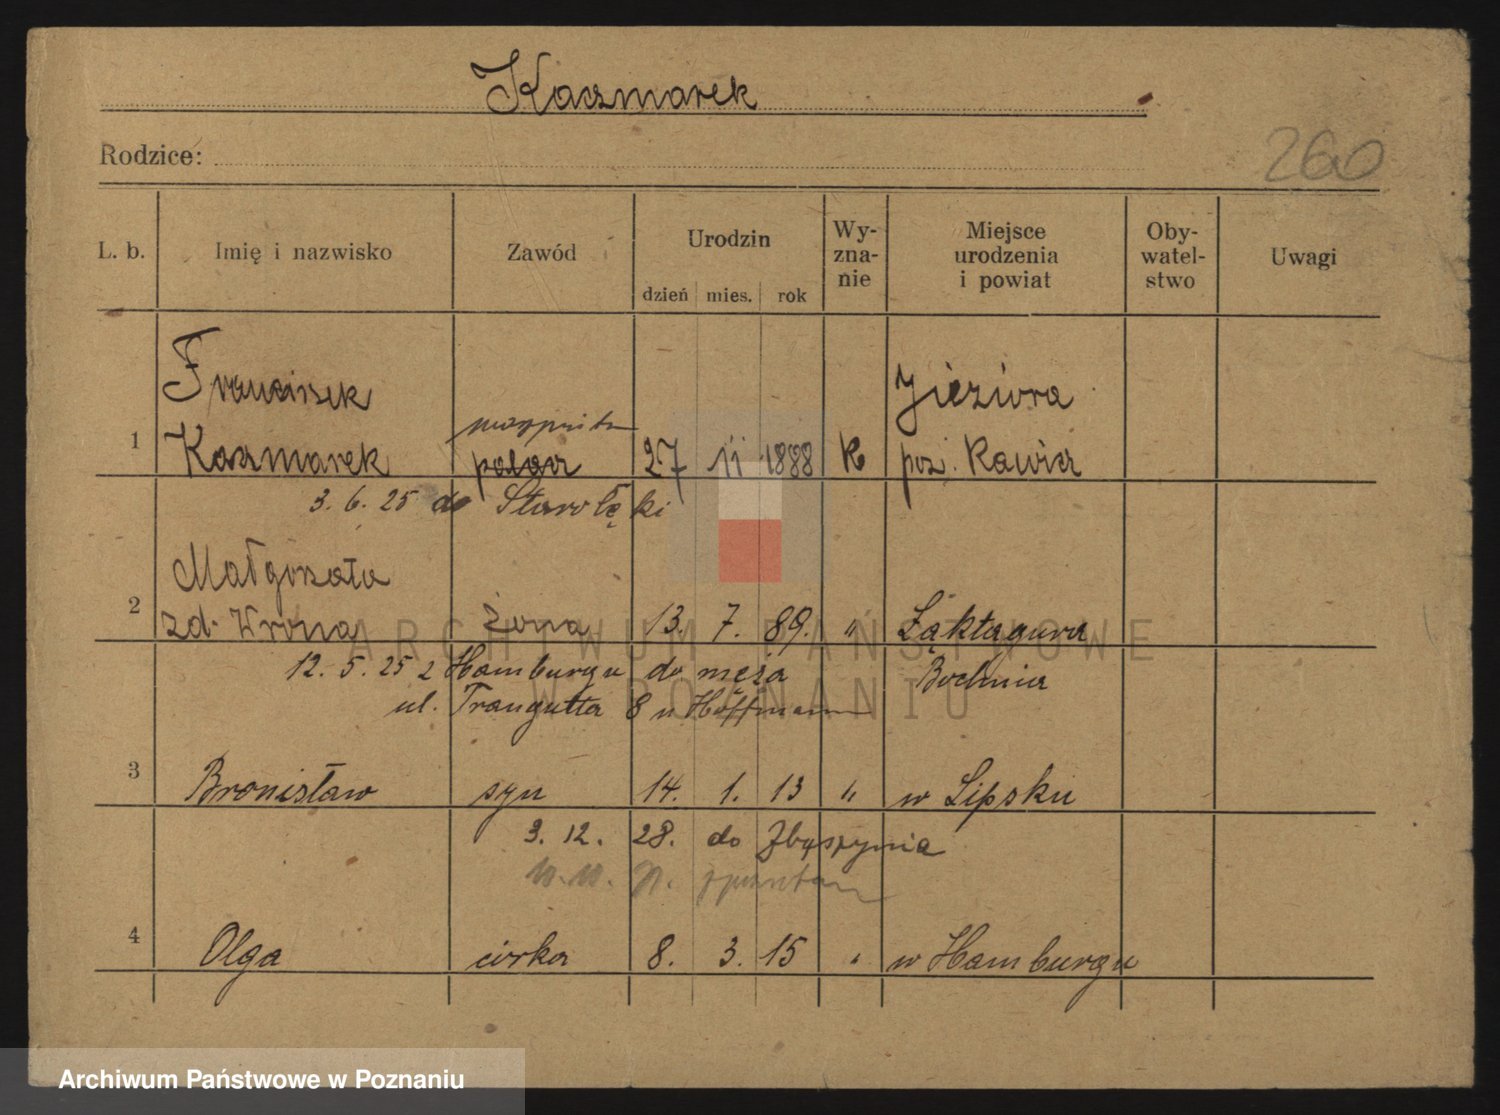 Kaczmarek
Rodzice:
260
L. b. Imię i nazwisko Zawód Urodzin dzień mies. rok Wy-zna-nie Miejsce urodzenia i powiat Oby-watel-stwo Uwagi
Franciszek Jieziora
1 Kaczmarek palacz 27 11 1888 k poz. Rawicz
3. 6. 25 do Starołęki
Małgorzata
2 zd. Wrona żona 13. 7. 89. " Łąktagura
12. 5. 25 z Hamburgu do męża Bochnia
ul. Traugutta 8 u Hoffmann
3 Bronisław syn 14. 1. 13 " w Lipsku
3. 12. 28. do Zbąszynia
4 Olga córka 8. 3. 15 " w Hamburgu
ARCHIWUM PAŃSTWOWE
W POZNANIU
Archiwum Państwowe w Poznaniu